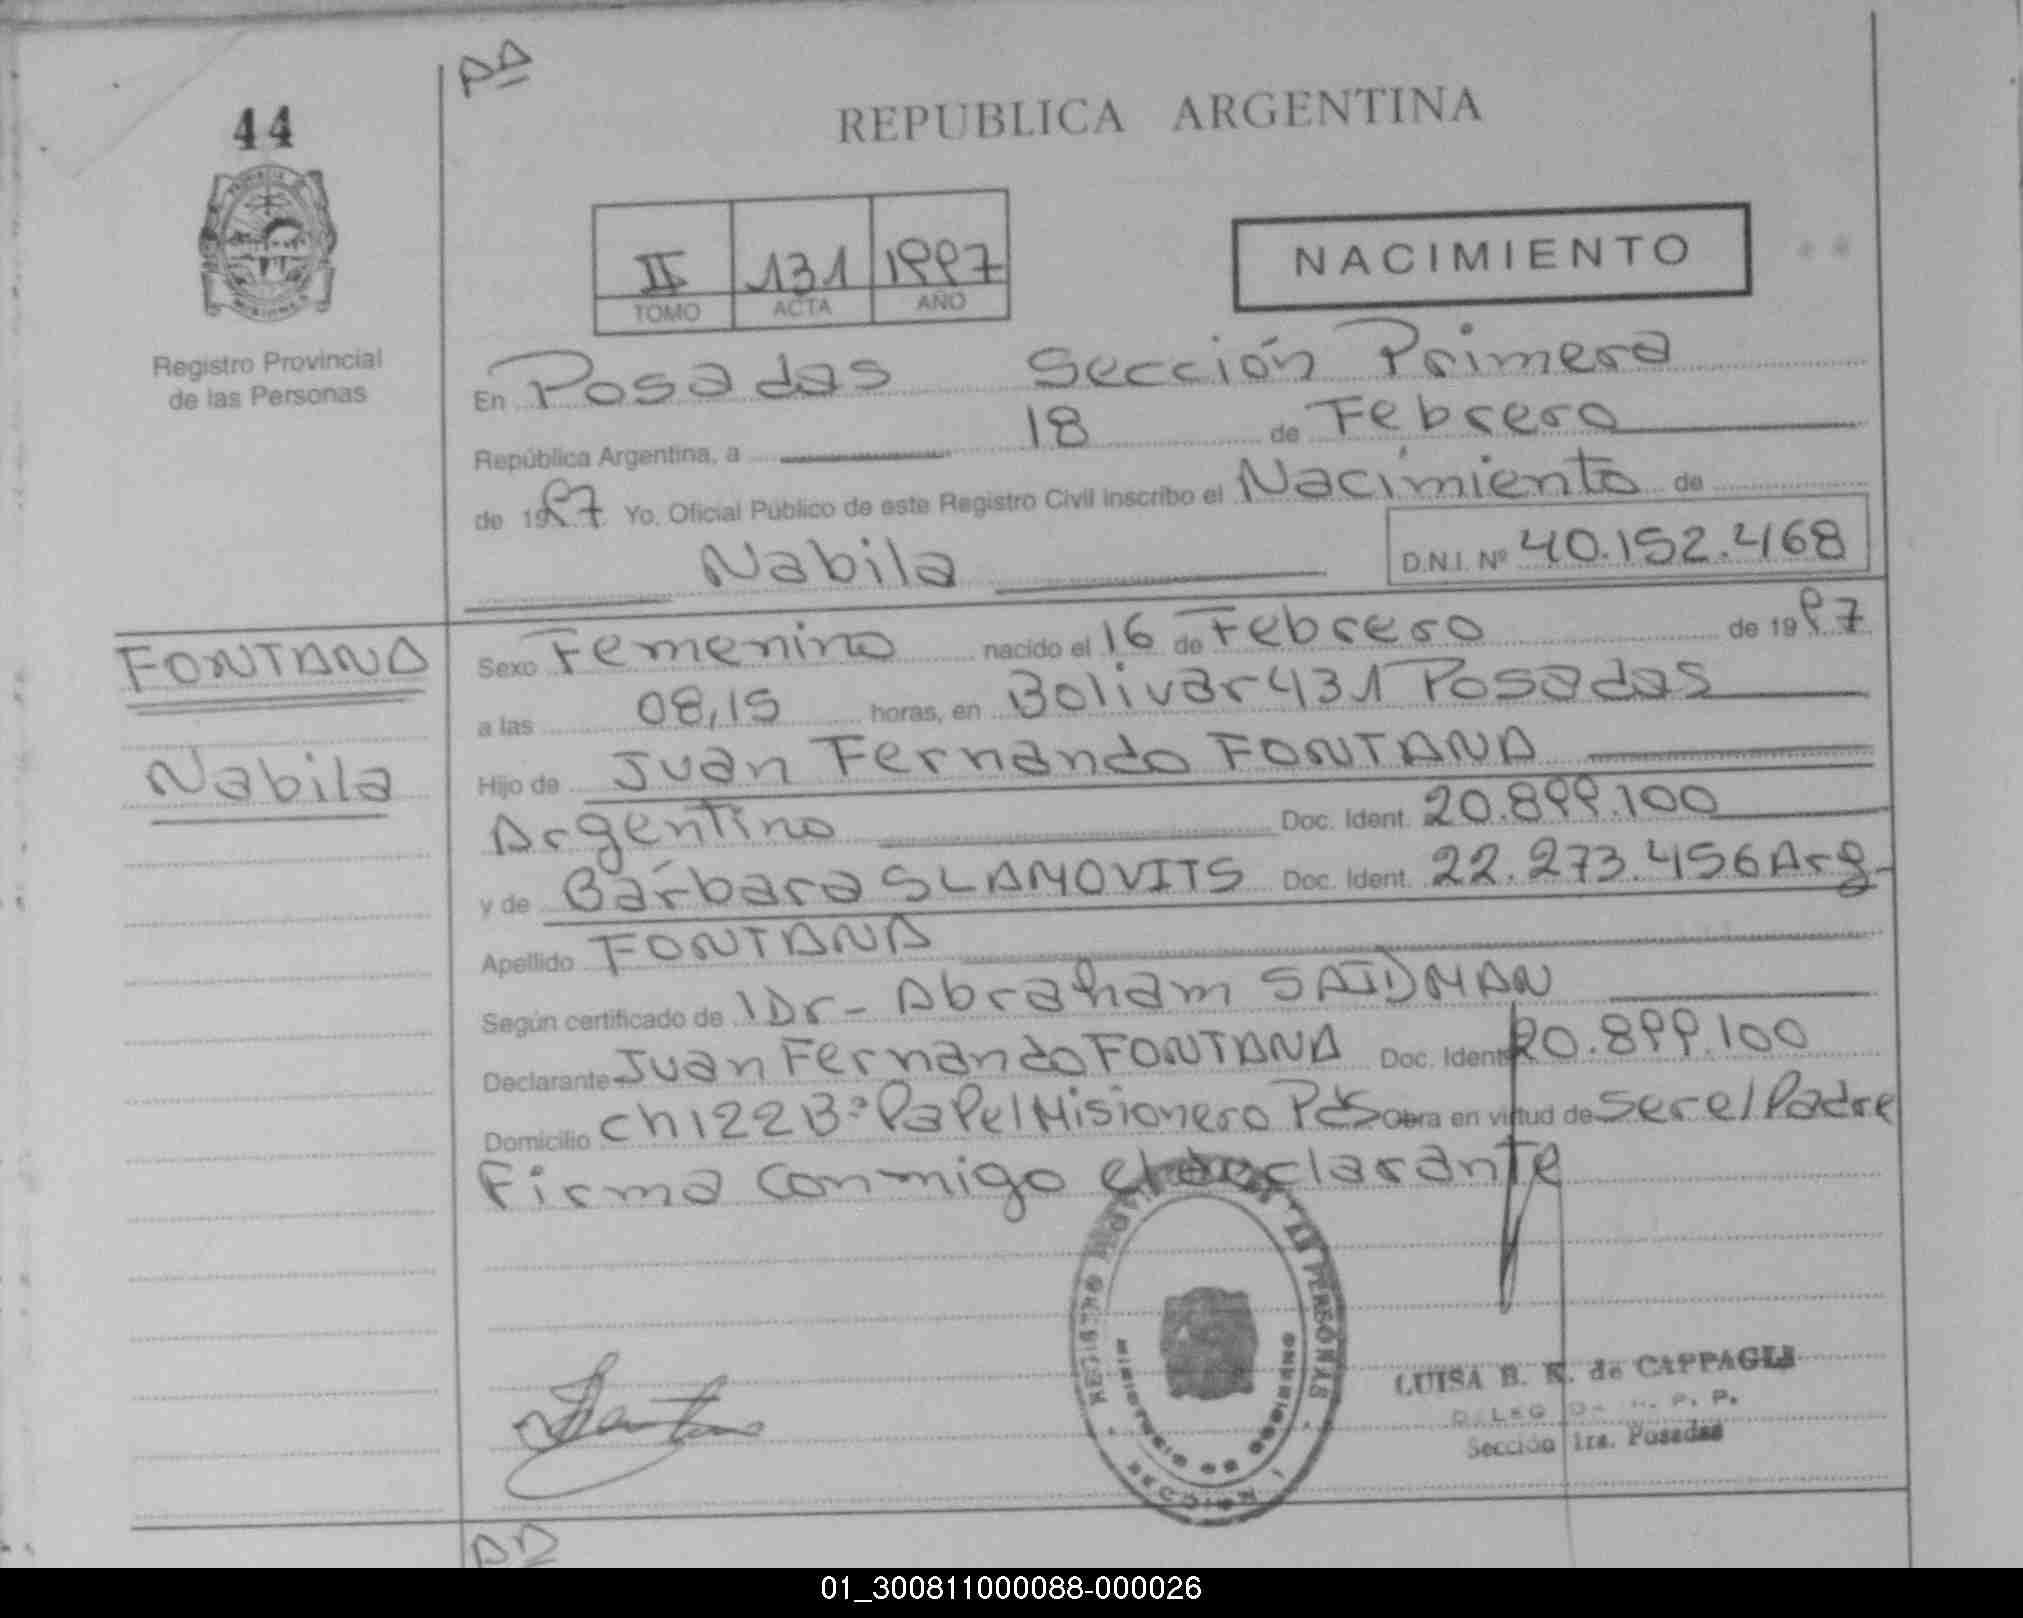 44
REPUBLICA ARGENTINA
II 131 1997
TOMO ACTA AÑO
NACIMIENTO
Registro Provincial
de las Personas
En Posadas Sección Primera
República Argentina, a 18 de Febrero
de 1997 Yo, Oficial Público de este Registro Civil inscribo el Nacimiento de
Nabila
D.N.I. Nº 40.152.468
FONTANA
Nabila
Sexo Femenino nacido el 16 de Febrero de 1997
a las 08,15 horas, en Bolivar 431 Posadas
Hijo de Juan Fernando FONTANA
Argentino Doc. Ident. 20.899.100
y de Bárbara SLAMOVITS Doc. Ident. 22.273.456 Arg-
Apellido FONTANA
Según certificado de 1Dr- Abraham SAIDMAN
Declarante Juan Fernando FONTANA Doc. Ident. 20.899.100
Domicilio Ch 122 Bº PaPel Misionero Pds Obra en virtud de Ser el Padre
Firma conmigo el declarante
REGISTRO DE LAS PERSONAS
LUISA B. K. de CAPPAGLI
Sección 1ra. Posadas
01_300811000088-000026